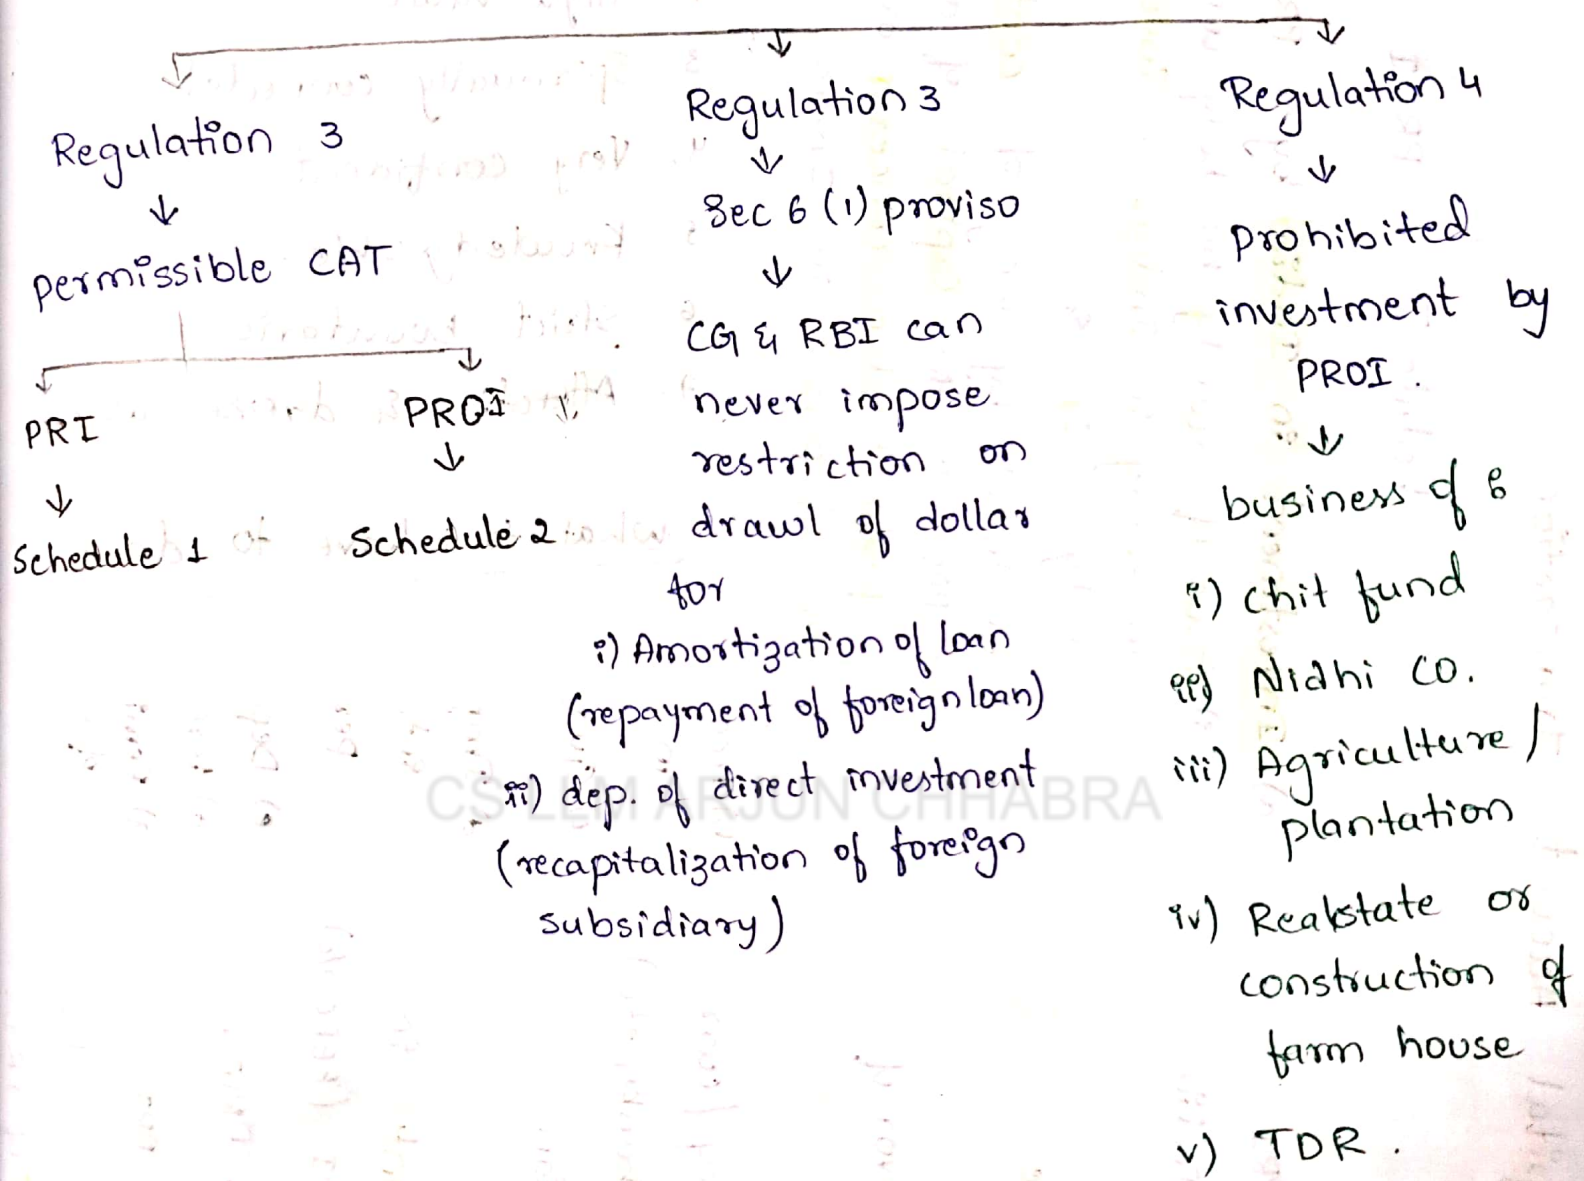 Regulation 3
↓
permissible CAT
PRI
↓
Schedule 1
PROI
↓
Schedule 2
Regulation 3
↓
Sec 6 (1) proviso
↓
CG & RBI can
never impose
restriction on
drawl of dollar
for
i) Amortization of loan
(repayment of foreign loan)
ii) dep. of direct investment
(recapitalization of foreign
subsidiary)
Regulation 4
↓
Prohibited
investment by
PROI.
↓
business of :
i) chit fund
ii) Nidhi co.
iii) Agriculture /
plantation
iv) Realstate or
construction of
farm house
v) TDR.
CS LLM ARJUN CHHABRA